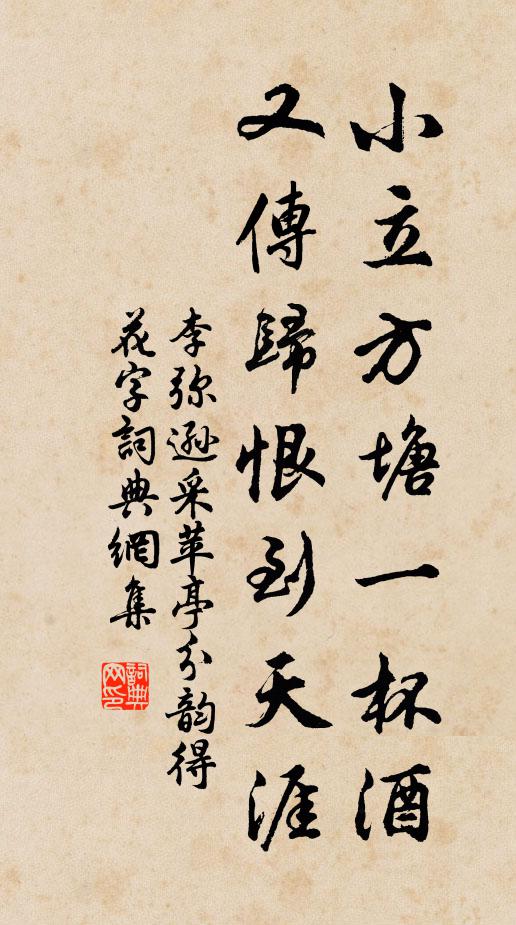 小立方塘一杯酒
又傳歸恨到天涯
李弥遜采苹亭分韵得
花字詞典網集
詞典
网印